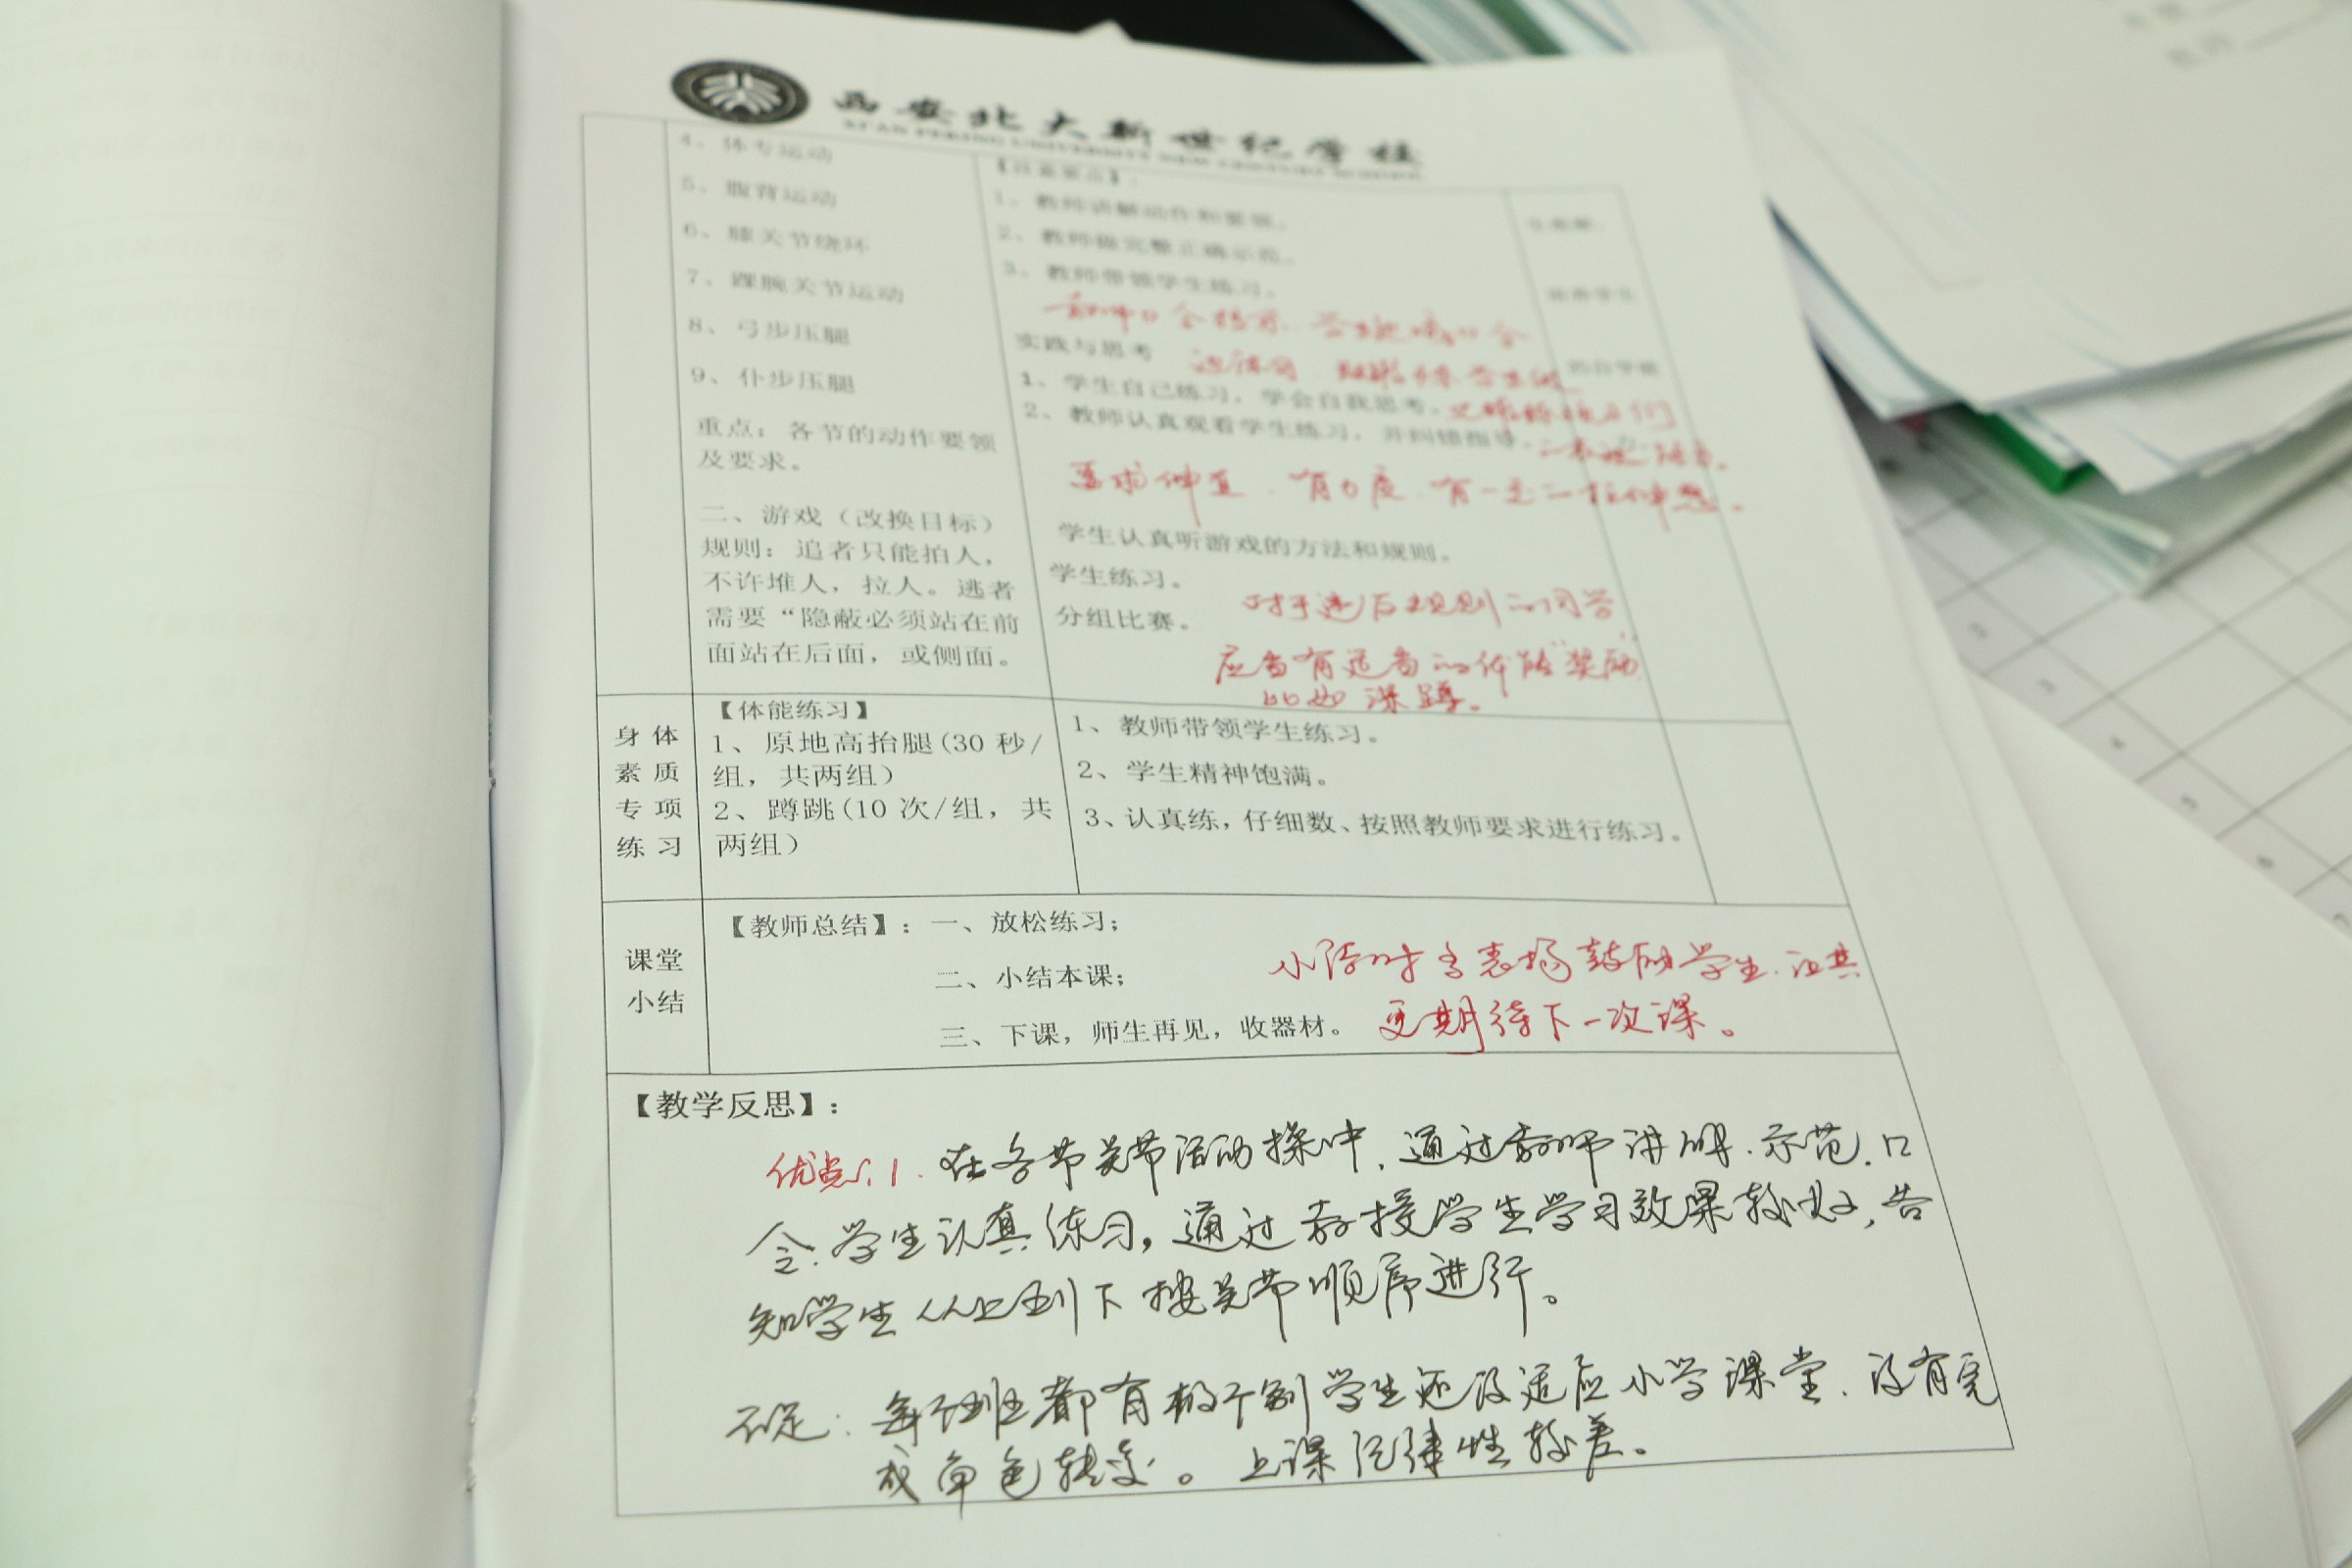 西安北大新世纪学校
XI'AN PEKING UNIVERSITY NEW CENTURY SCHOOL
4、体专运动
5、腹背运动
6、膝关节绕环
7、踝腕关节运动
8、弓步压腿
9、仆步压腿
重点：各节的动作要领
及要求。
二、游戏（改换目标）
规则：追者只能拍人，
不许堆人，拉人。逃者
需要“隐蔽必须站在前
面站在后面，或侧面。
1、教师讲解动作和要领。
2、教师做完整正确示范。
3、教师带领学生练习。
实践与思考
1、学生自己练习，学会自我思考。
2、教师认真观看学生练习，并纠错指导。
要求伸直、有力度、有一定
学生认真听游戏的方法和规则。
学生练习。
分组比赛。
对于违反规则的同学
应当有适当的体能“奖励”
比如深蹲。
身体
素质
专项
练习
【体能练习】
1、原地高抬腿(30 秒/
组，共两组）
2、蹲跳(10 次/组，共
两组）
1、教师带领学生练习。
2、学生精神饱满。
3、认真练，仔细数、按照教师要求进行练习。
课堂
小结
【教师总结】：一、放松练习；
二、小结本课；
三、下课，师生再见，收器材。
小结时多表扬鼓励学生.让其
更期待下一次课。
【教学反思】：
优点：1.在各节关节活动操中、通过教师讲解.示范.口
令.学生认真练习，通过教授学生学习效果较好，告
知学生从上到下按关节顺序进行。
不足：每个班都有个别学生还没适应小学课堂.没有完
成角色转变。上课纪律性较差。